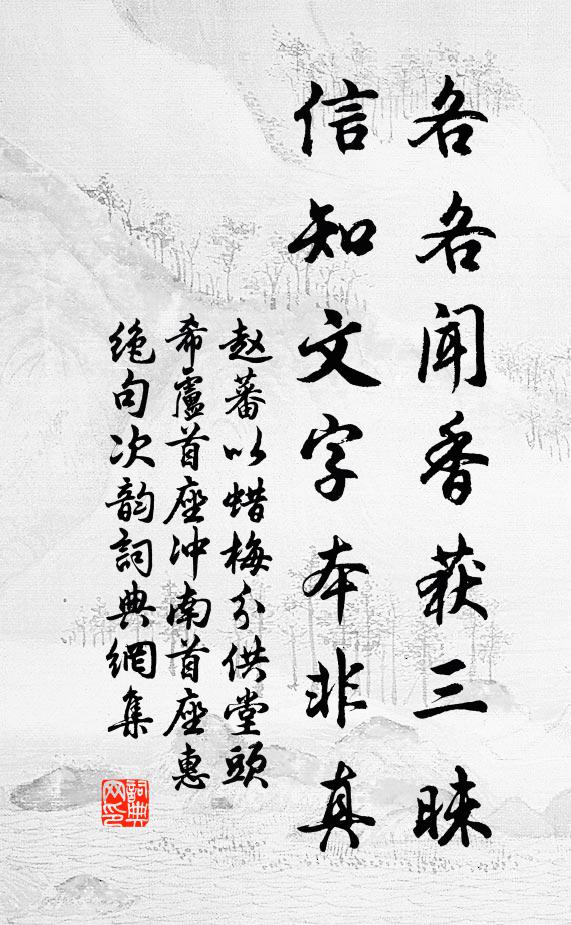 各各闻香获三昧
信知文字本非真
赵蕃以蜡梅分供堂头
希廬首座冲南首座惠
绝句次韵詞典網集
詞典网印